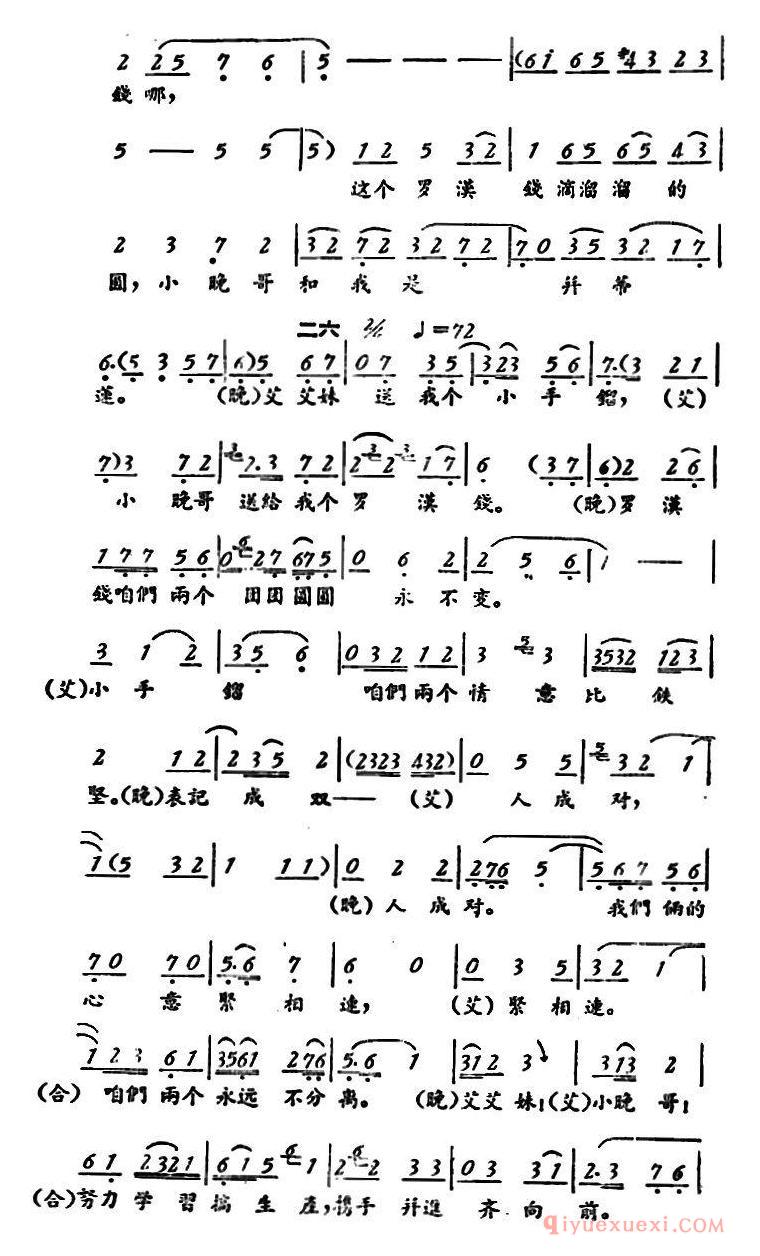 2 2 5 7 6 | 5 — — — | (6 i 6 5 #4 3 2 3 |
錢哪，
5 — 5 5 | 5) 1 2 5 3 2 | 1 6 5 6 5 4 3 |
这个罗漢 錢滴溜溜的
2 3 7 2 | 3 2 7 2 3 2 7 2 | 7 0 3 5 3 2 1 7 |
圓，小晚哥和我是 并蒂
二六 2/4 ♩=72
6.(5 3 5 7 | 6)5 6 7 | 0 7 3 5 | 3 2 3 5 6 | 7.(3 2 1 |
蓮。 (晚)艾艾妹 送我个小手鎦，(艾)
7)3 7 2 | 2.3 7 2 | 2 2 1 7 | 6 (3 7 | 6)2 2 6 |
小晚哥送給我个罗漢錢。 (晚)罗漢
1 7 7 5 6 | 0 2 7 6 7 5 | 0 6 2 | 2 5 6 | 1 — — |
錢咱們兩个团团圓圓 永不变。
3 1 2 | 3 5 6 | 0 3 2 1 2 | 3 3 | 3 5 3 2 1 2 3 |
(艾)小手鎦 咱們兩个情意比鉄
2 1 2 | 2 3 5 2 | (2 3 2 3 4 3 2) | 0 5 5 | 3 2 1 |
坚。(晚)表記成双—— (艾)人成对，
1 (5 3 2 | 1 1 1) | 0 2 2 | 2 7 6 5 | 5 6 7 5 6 |
(晚)人成对。 我們俩的
7 0 7 0 | 5.6 7 | 6 0 | 0 3 5 | 3 2 1 |
心意緊相連， (艾)緊相連。
1 2 3 6 1 | 3 5 6 1 2 7 6 | 5.6 1 | 3 1 2 3 | 3 1 3 2 |
(合)咱們兩个永远不分离。 (晚)艾艾妹；(艾)小晚哥；
6 1 2 3 2 1 | 6 1 5 1 | 2 2 3 3 | 0 3 3 1 | 2.3 7 6 |
(合)努力学習搞生產，携手并進齐向前。
qiyuexuexi.com